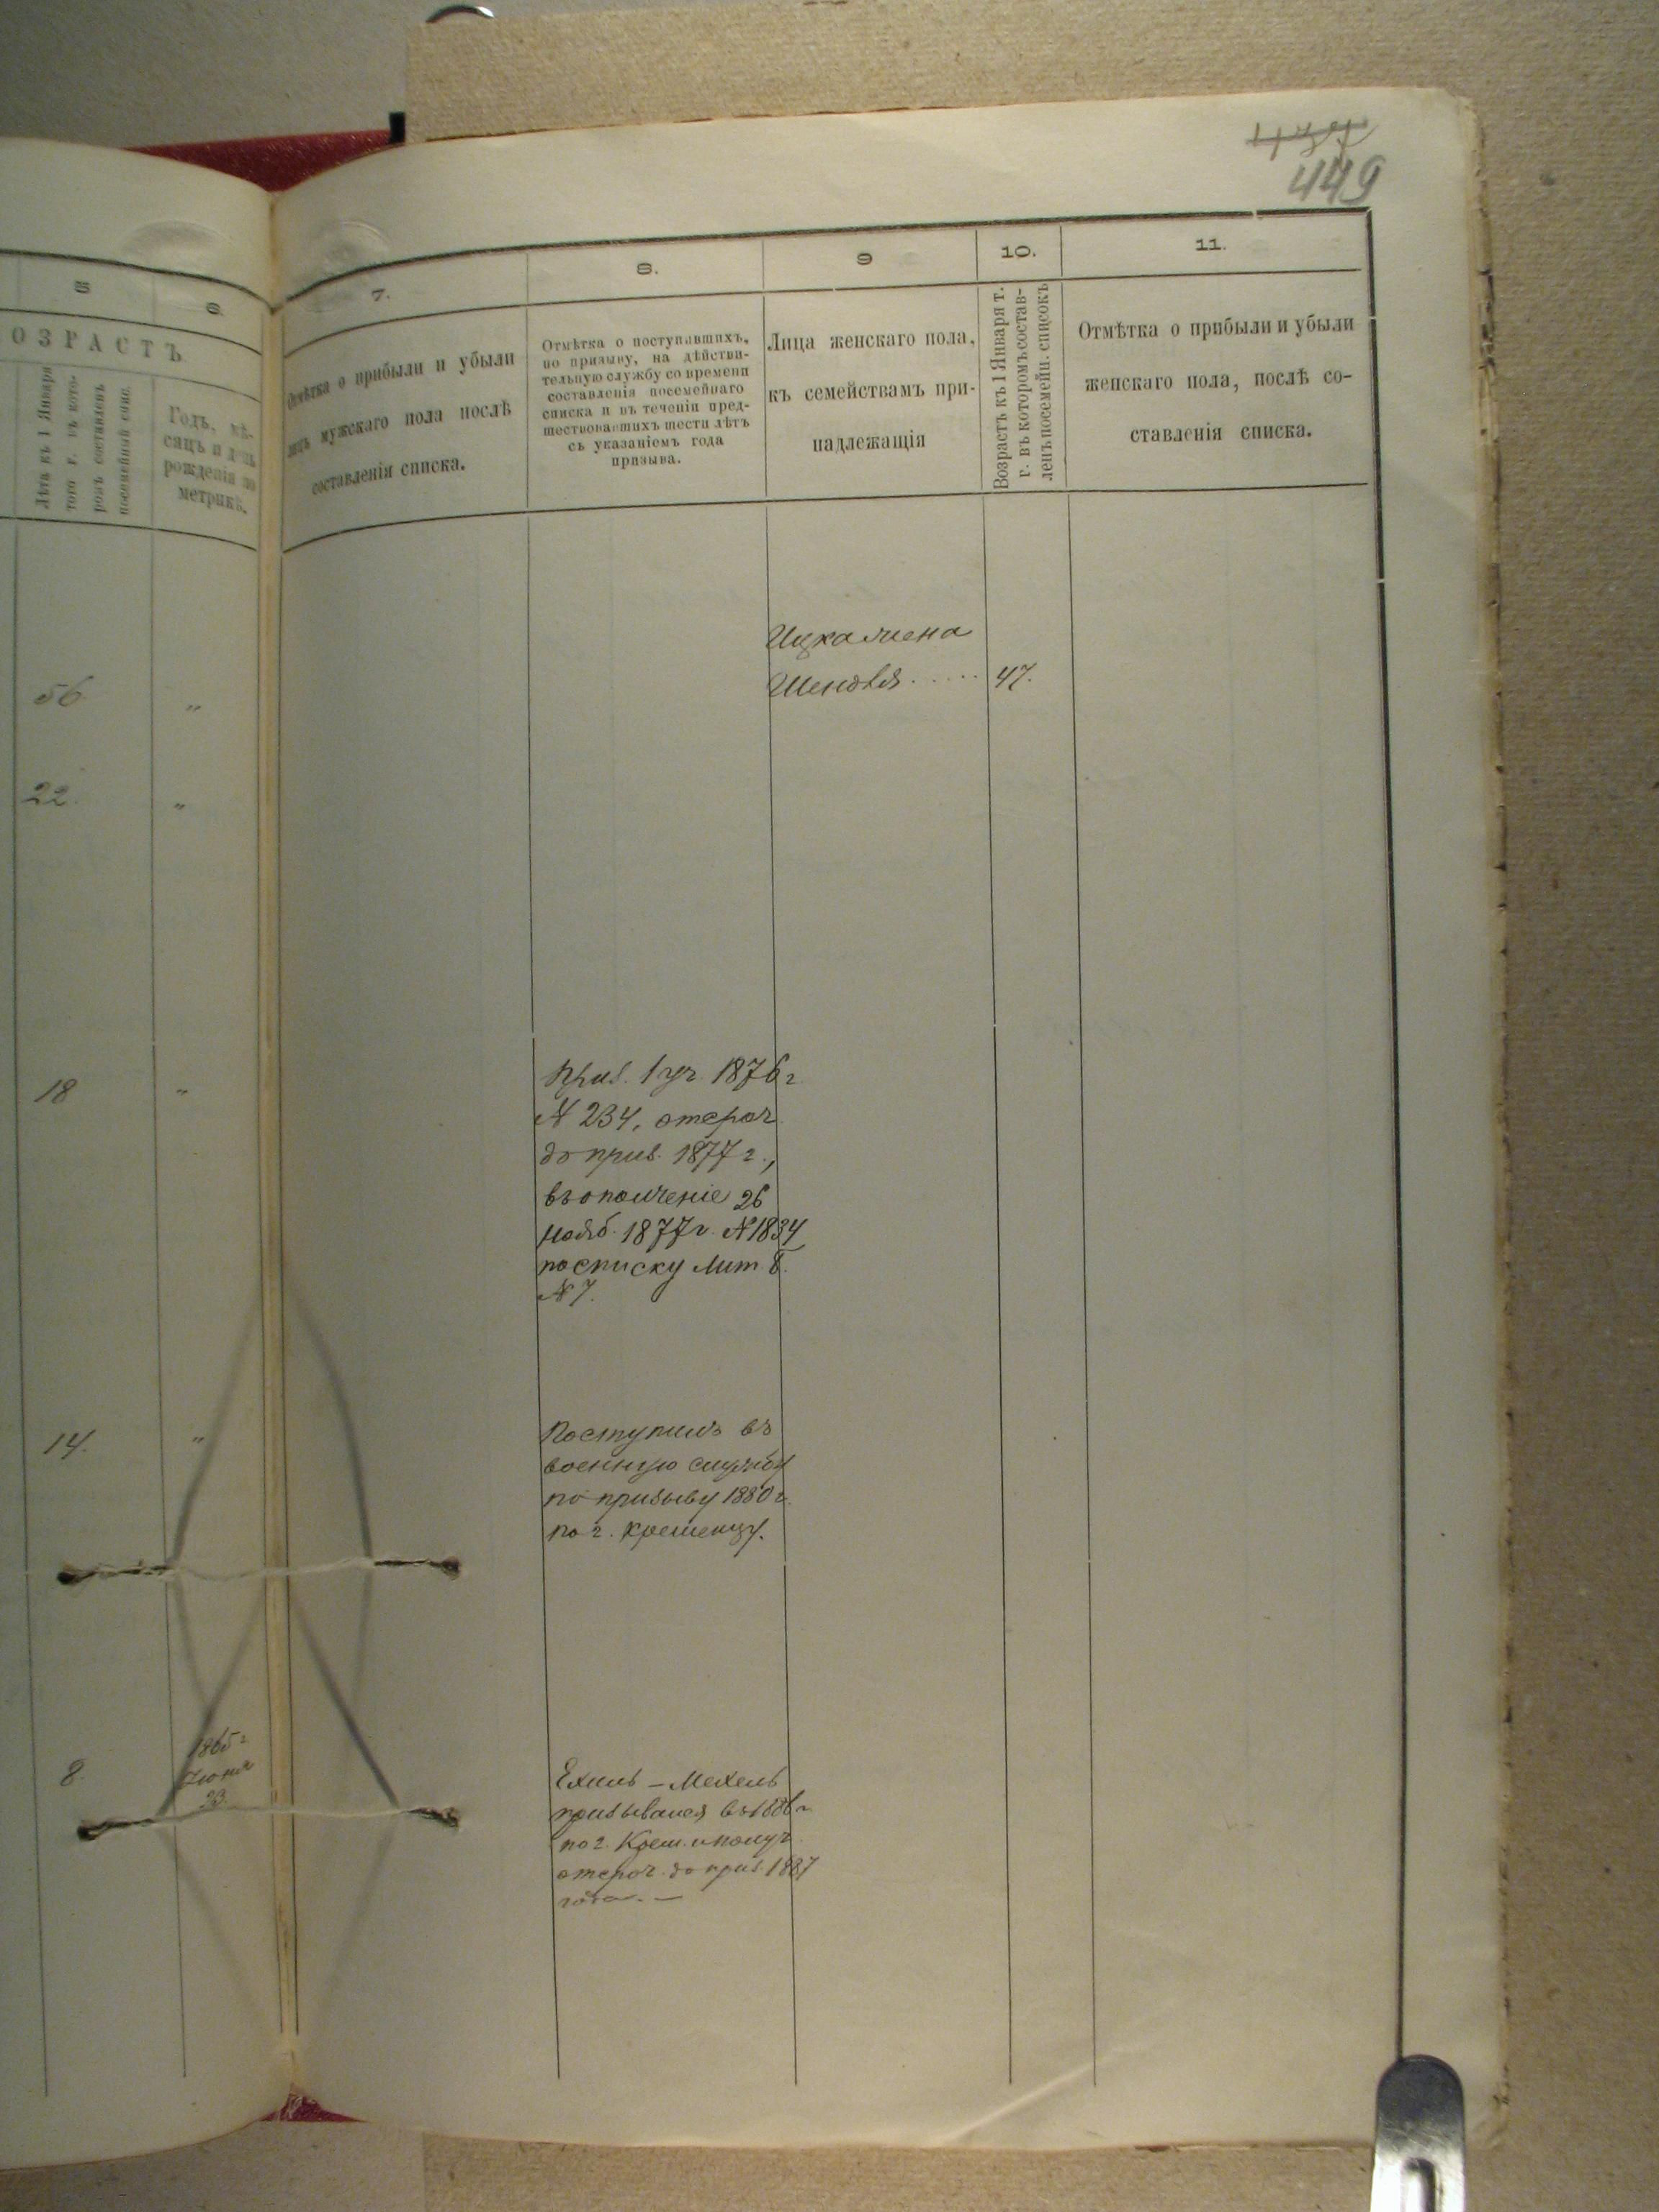 437
449
5
6
ОЗРАСТЪ
Лѣта къ 1 Января
того г. въ кото-
ромъ составленъ
посемейный спис.
Годъ, мѣ-
сяцъ и день
рожденія по
метрикѣ.
56 "
22. "
18 "
14. "
8. 1865 г
Іюня
23.
7.
8.
9
10.
11.
Отмѣтка о прибыли и убыли
лицъ мужскаго пола послѣ
составленія списка.
Отмѣтка о поступавшихъ,
по призыву, на дѣйстви-
тельную службу со времени
составленія посемейнаго
списка и въ теченіи пред-
шествовавшихъ шести лѣтъ
съ указаніемъ года
призыва.
Лица женскаго пола,
къ семействамъ при-
надлежащія
Возрастъ къ 1 Января т.
г. въ которомъ состав-
ленъ посемейн. списокъ
Отмѣтка о прибыли и убыли
женскаго пола, послѣ со-
ставленія списка.
Ицка жена
Шендля ..... 47.
Приз. 1 уч. 1876 г
N 234, отсроч
до приз. 1877 г.,
въ ополченіе 26
нояб. 1877 г. N 1834
по списку Лит. Б.
N 7.
Поступилъ въ
военную службу
по призыву 1880 г.
по г. Кременцу.
Ехиль – Мехель
призывался въ 1886 г
по г. Крем. и получ.
отсроч. до приз. 1887
года. —